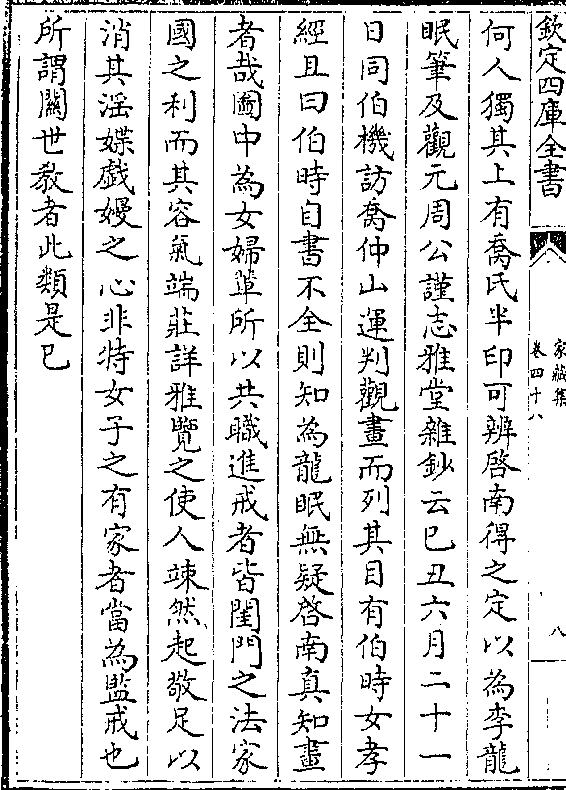 欽定四庫全書
家藏集
卷四十八
八
何人獨其上有喬氏半印可辨啓南得之定以為李龍
眠筆及觀元周公謹志雅堂雜鈔云已丑六月二十一
日同伯機訪喬仲山運判觀畫而列其目有伯時女孝
經且曰伯時自書不全則知為龍眠無疑啓南真知畫
者哉圖中為女婦輩所以共職進戒者皆閨門之法家
國之利而其容氣端莊詳雅覽之使人竦然起敬足以
消其淫媟戲嫚之心非特女子之有家者當為監戒也
所謂關世教者此類是已